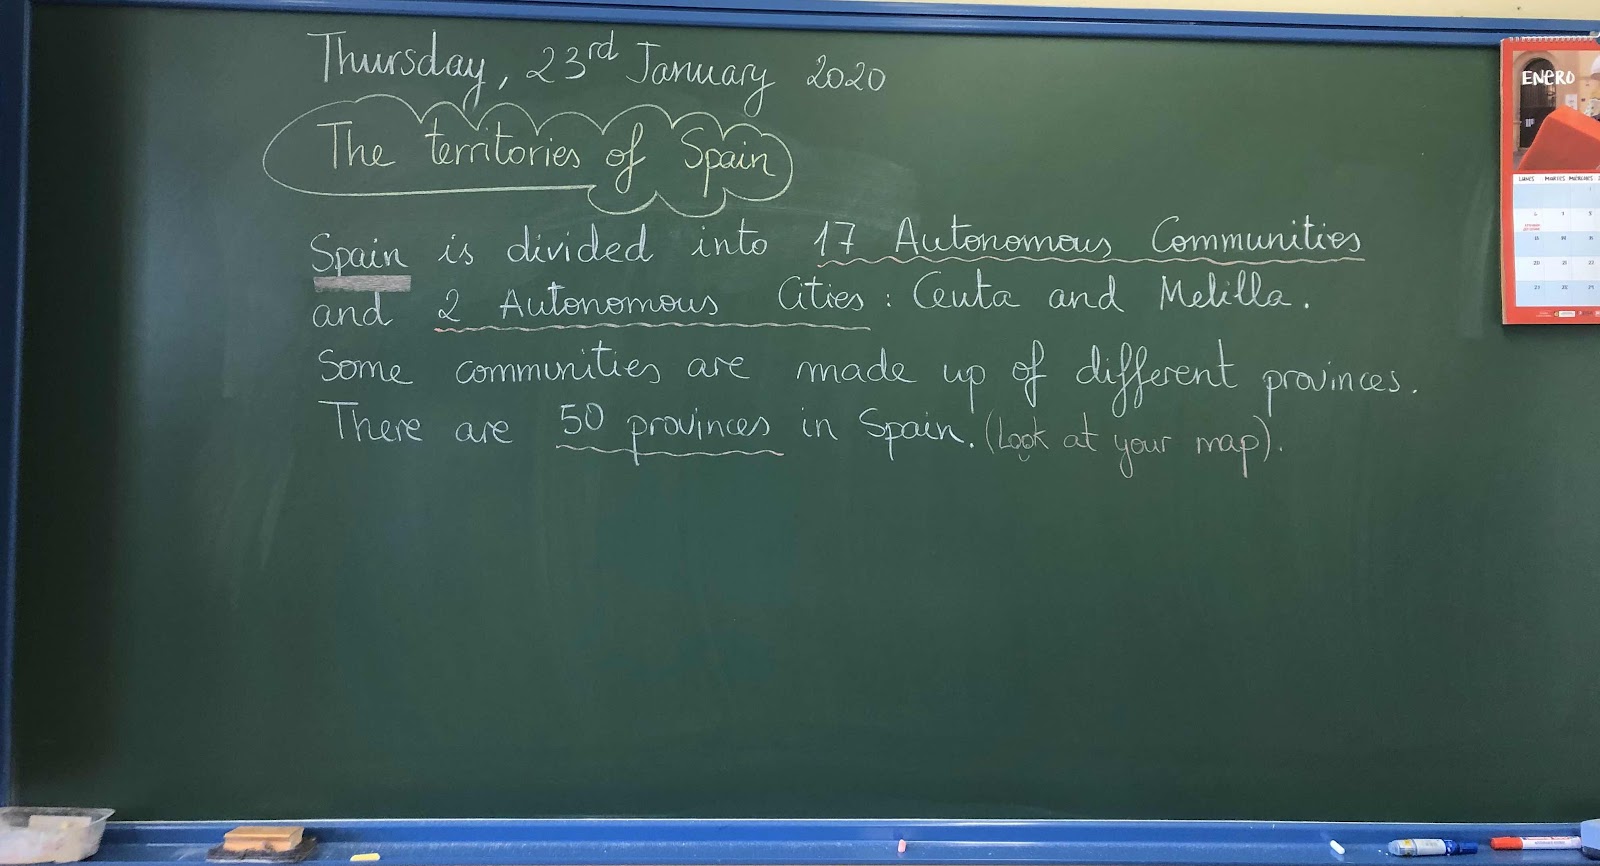 Thursday, 23rd January 2020
The territories of Spain
Spain is divided into 17 Autonomous Communities
and 2 Autonomous Cities: Ceuta and Melilla.
Some communities are made up of different provinces.
There are 50 provinces in Spain. (Look at your map).
ENERO
LUNES MARTES MIERCOLES